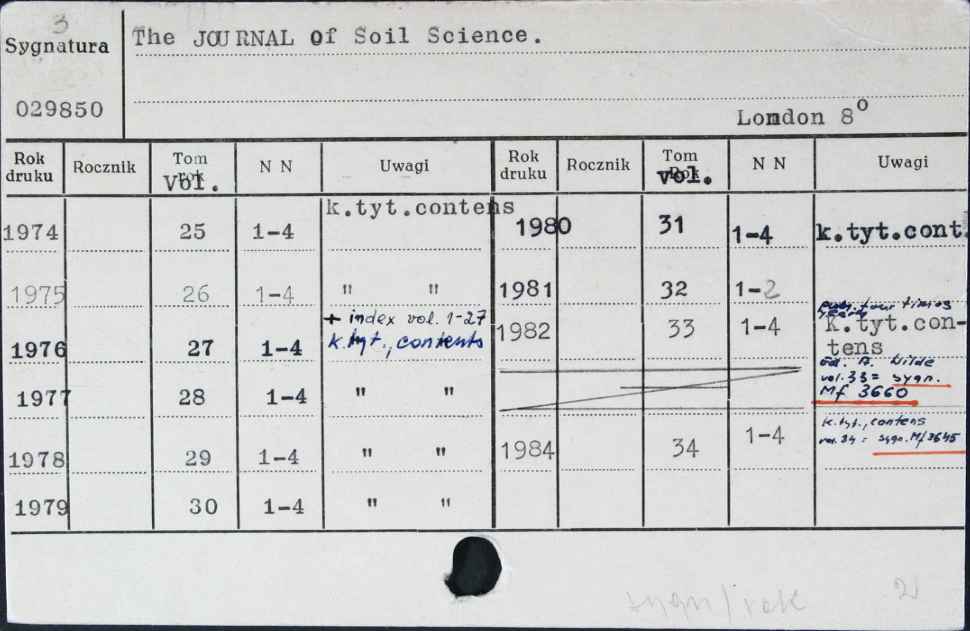 3
Sygnatura
029850
The JOURNAL of Soil Science.
London 8⁰
Rok druku Rocznik Tom Vol. N N Uwagi
1974 25 1-4 k.tyt.contens
1975 26 1-4 " "
+ index vol. 1-27
1976 27 1-4 k.tyt., contents
1977 28 1-4 " "
1978 29 1-4 " "
1979 30 1-4 " "
Rok druku Rocznik Tom Rok vol. N N Uwagi
1980 31 1-4 k.tyt.cont.
1981 32 1-2
four times
1982 33 1-4 k.tyt.con-
tens
Ed. A. Wilde
vol. 33 = sygn.
Mf 3660
1984 34 1-4 k.tyt., contens
vol. 34 = sygn. Mf 3645
sygn/rok 2